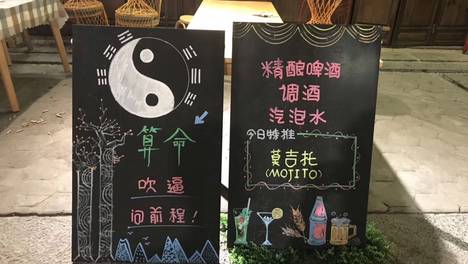 算命
吹逼
问前程!
精酿啤酒
调酒
汽泡水
今日特推
莫吉托
(MOJITO)